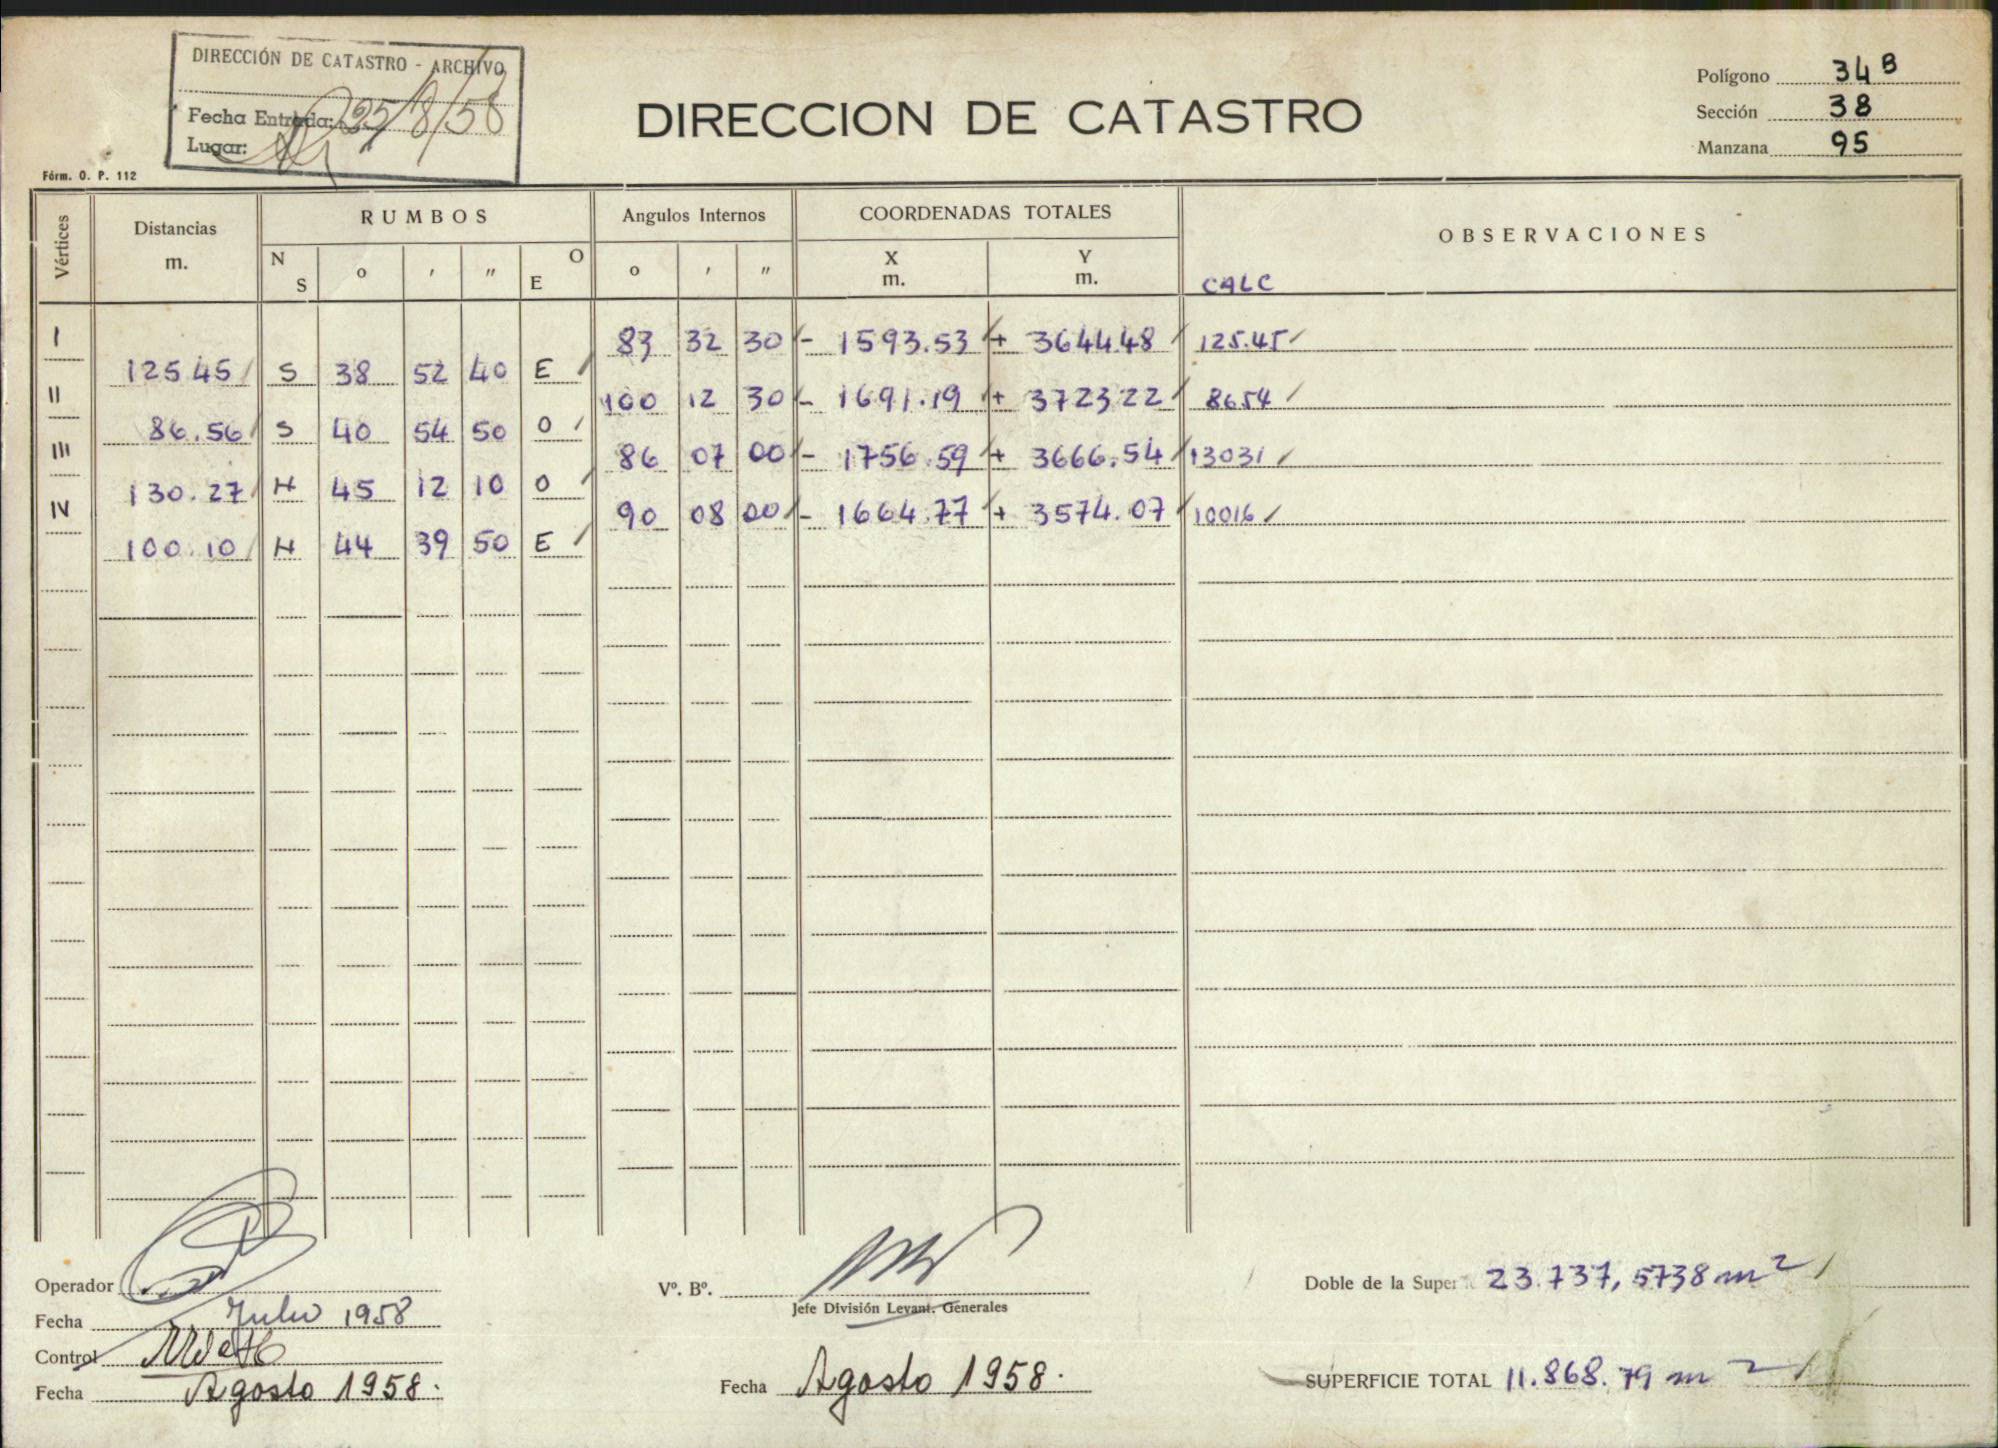 DIRECCIÓN DE CATASTRO - ARCHIVO
Fecha Entrada: 25/8/58
Lugar:
DIRECCION DE CATASTRO
Polígono 34 B
Sección 38
Manzana 95
Fórm. O. P. 112
Vértices Distancias m. RUMBOS Angulos Internos COORDENADAS TOTALES OBSERVACIONES
N S o ' " O E o ' " X m. Y m. CALC
I 83 32 30 - 1593.53 + 3644.48 125.45
125.45 S 38 52 40 E
II 100 12 30 - 1691.19 + 3723.22 8654
86.56 S 40 54 50 O
III 86 07 00 - 1756.59 + 3666.54 13031
130.27 N 45 12 10 O
IV 90 08 00 - 1664.77 + 3574.07 10016
100.10 N 44 39 50 E
Operador
Fecha Julio 1958
Control
Fecha Agosto 1958.
Vº. Bº.
Jefe División Levant. Generales
Fecha Agosto 1958.
Doble de la Super 23.737,5738 m2
SUPERFICIE TOTAL 11.868.79 m2